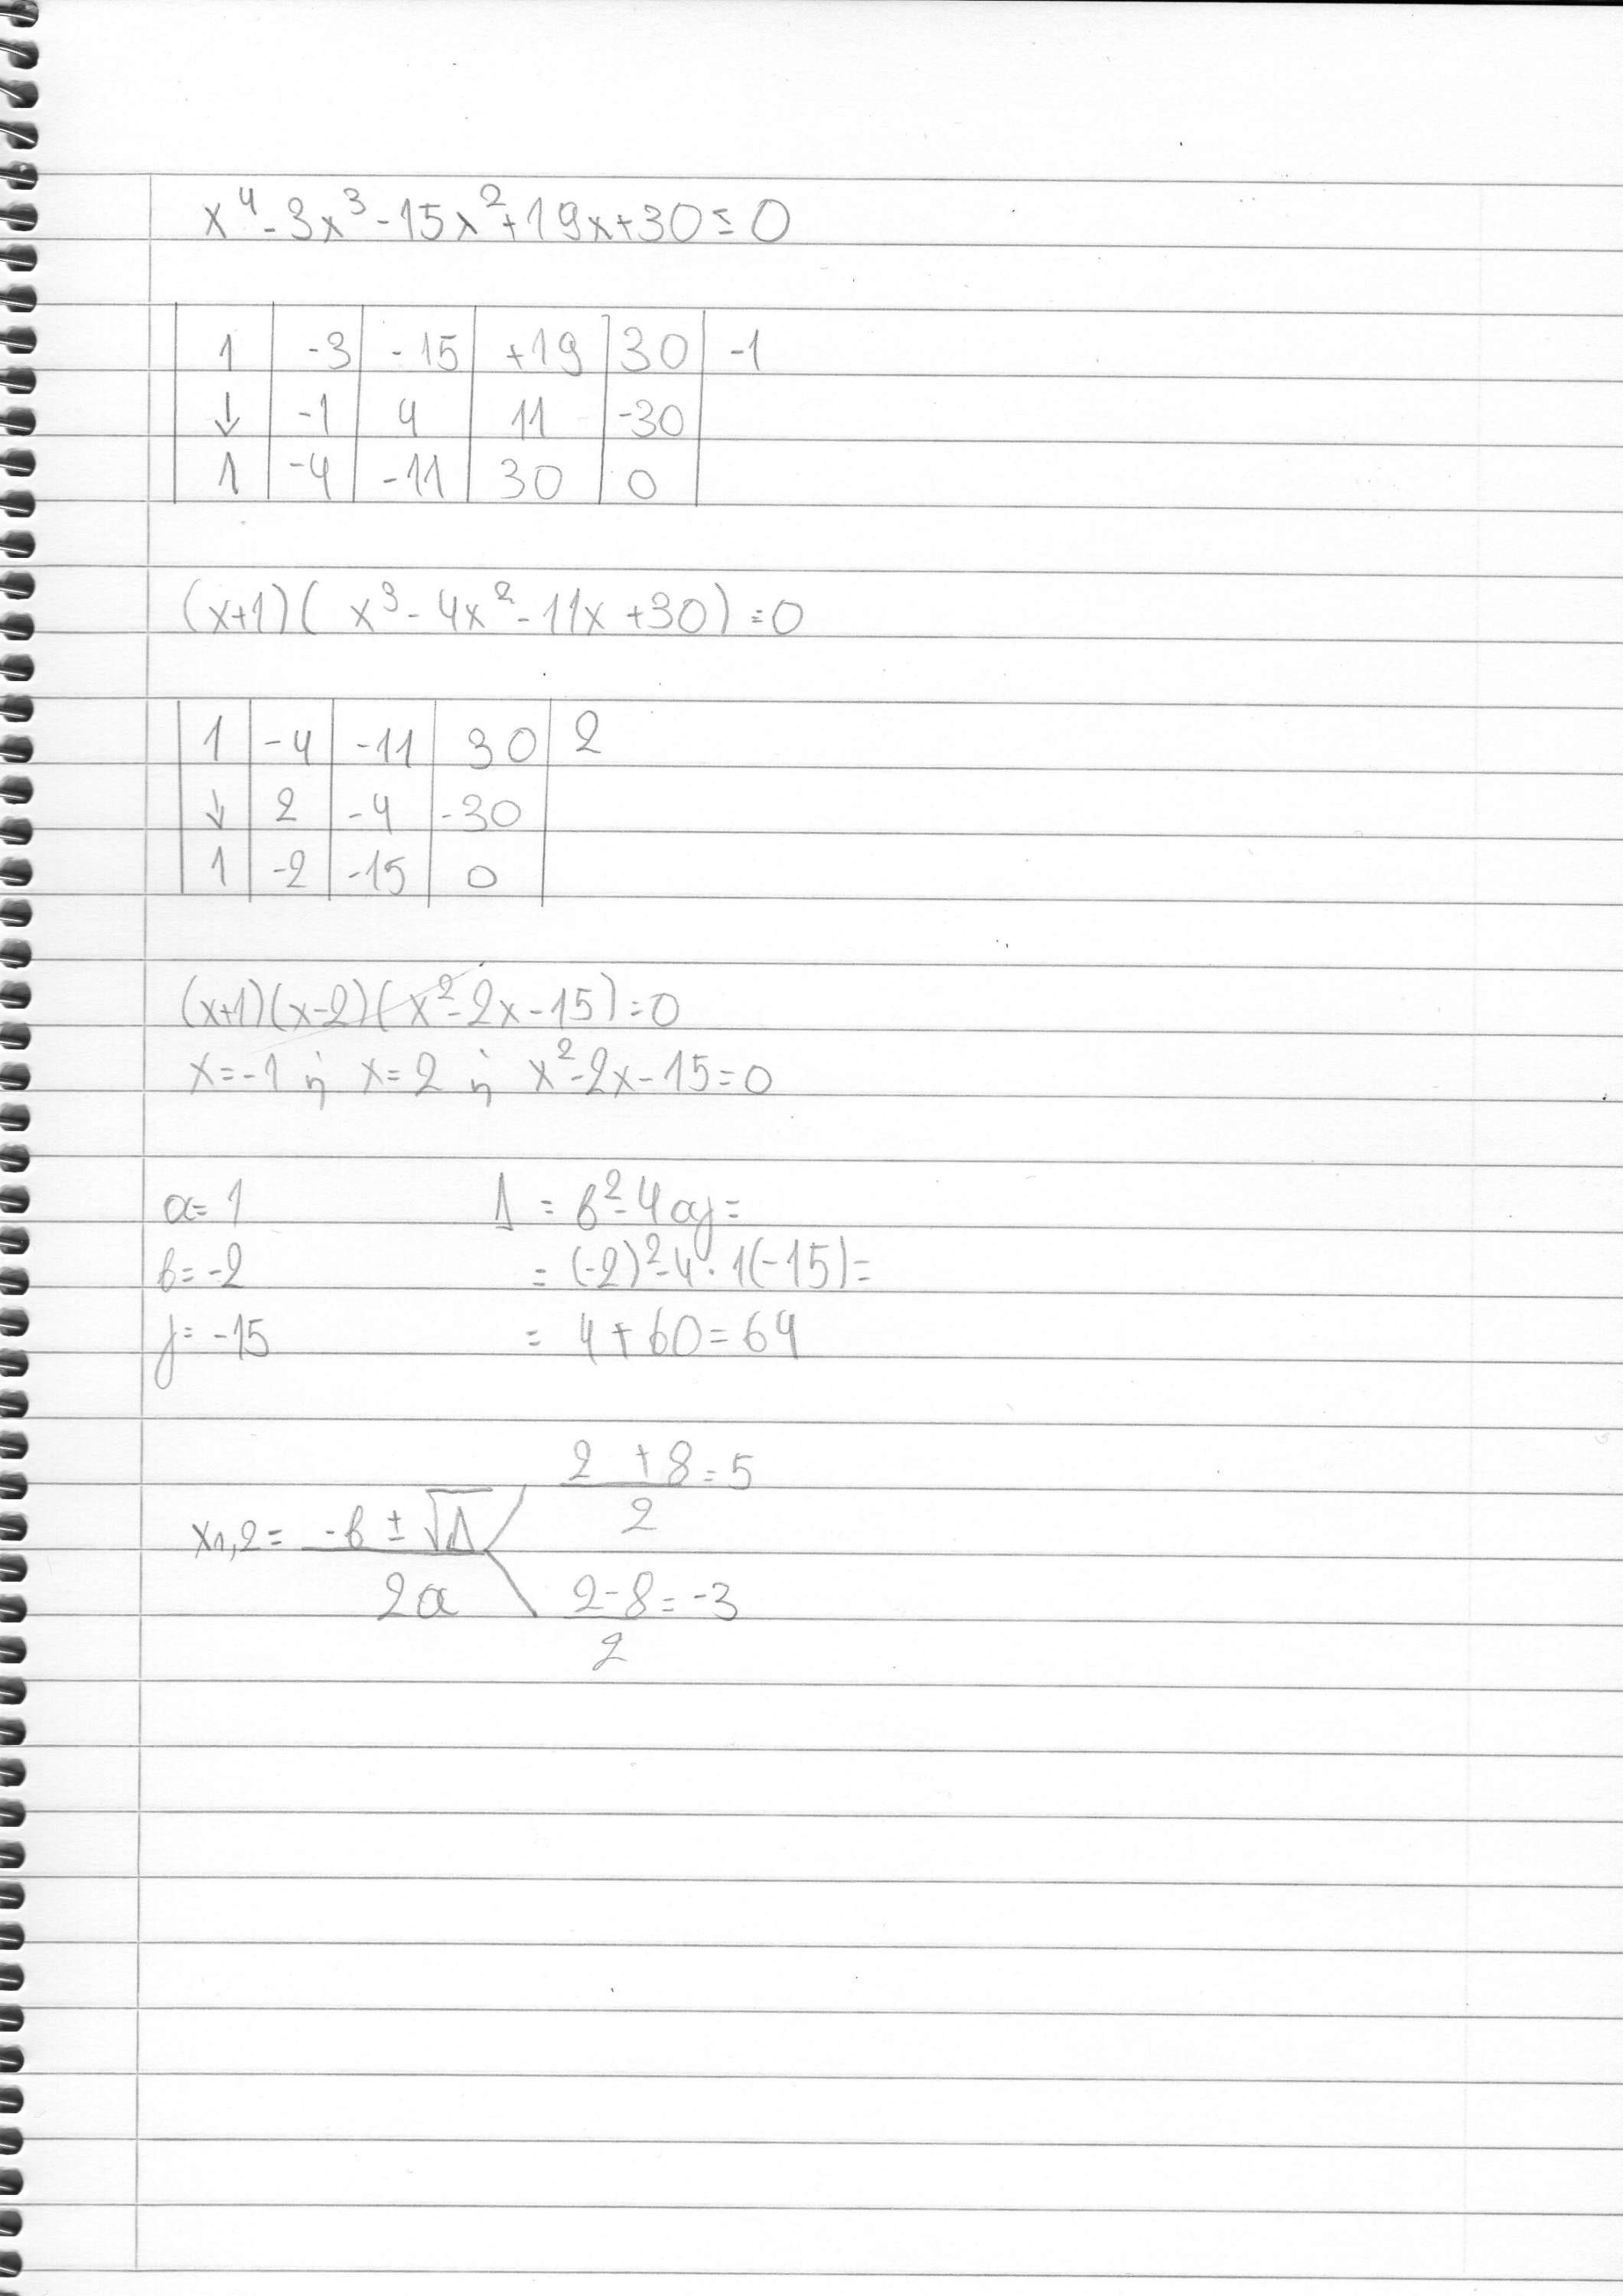 x⁴-3x³-15x²+19x+30=0
1 | -3 | -15 | +19 | 30 | -1
↓ | -1 | 4 | 11 | -30
1 | -4 | -11 | 30 | 0
(x+1)(x³-4x²-11x+30)=0
1 | -4 | -11 | 30 | 2
↓ | 2 | -4 | -30
1 | -2 | -15 | 0
(x+1)(x-2)(x²-2x-15)=0
x=-1 ή x=2 ή x²-2x-15=0
α=1
β=-2
γ=-15
Δ = β²-4αγ=
= (-2)²-4·1(-15)=
= 4+60=64
x1,2= -β ± √Δ / 2α
2+8 / 2 = 5
2-8 / 2 = -3